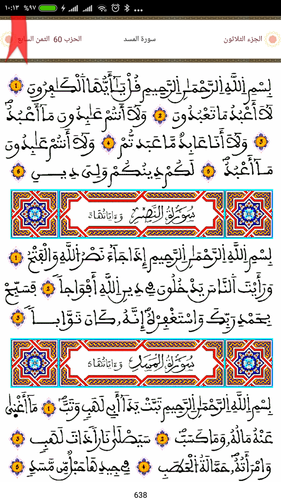 ١٠:١٣ %٩٧
الجزء الثلاثون سورة المسد الحزب 60 الثمن السابع
بِسْمِ اللَّهِ الرَّحْمَٰنِ الرَّحِيمِ قُلْ يَٰٓأَيُّهَا الْكَٰفِرُونَ ١
لَآ أَعْبُدُ مَا تَعْبُدُونَ ٢ وَلَآ أَنتُمْ عَٰبِدُونَ مَآ أَعْبُدُ
٣ وَلَآ أَنَا عَابِدٌ مَّا عَبَدتُّمْ ٤ وَلَآ أَنتُمْ عَٰبِدُونَ
مَآ أَعْبُدُ ٥ لَكُمْ دِينُكُمْ وَلِيَ دِينِ ٦
سُورَةُ النَّصْرِ وَءَايَاتُهَا
بِسْمِ اللَّهِ الرَّحْمَٰنِ الرَّحِيمِ إِذَا جَآءَ نَصْرُ اللَّهِ وَالْفَتْحُ
١ وَرَأَيْتَ النَّاسَ يَدْخُلُونَ فِي دِينِ اللَّهِ أَفْوَاجاً ٢ فَسَبِّحْ
بِحَمْدِ رَبِّكَ وَاسْتَغْفِرْهُ إِنَّهُ كَانَ تَوَّاباً ٣
سُورَةُ الْمَسَدِ وَءَايَاتُهَا
بِسْمِ اللَّهِ الرَّحْمَٰنِ الرَّحِيمِ تَبَّتْ يَدَآ أَبِي لَهَبٍ وَتَبَّ ١ مَآ أَغْنَىٰ
عَنْهُ مَالُهُ وَمَا كَسَبَ ٢ سَيَصْلَىٰ نَاراً ذَاتَ لَهَبٍ
٣ وَامْرَأَتُهُ حَمَّالَةُ الْحَطَبِ ٤ فِي جِيدِهَا حَبْلٌ مِّن مَّسَدٍ ٥
638